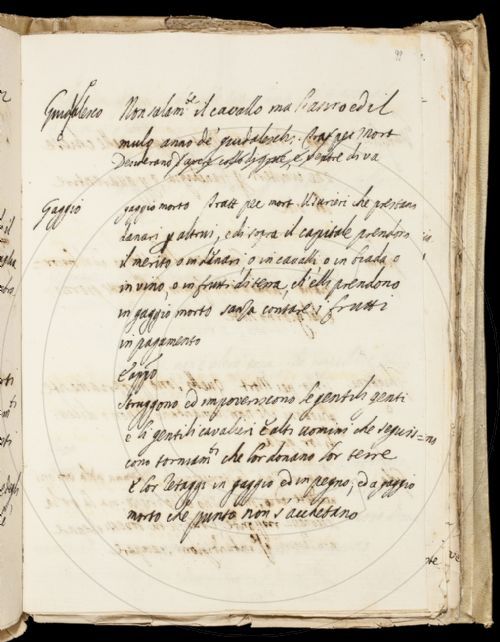 99
Guidalesco Non solam.te il cavallo ma l'asino ed il
mulo anno de' guidaleschi. Tratt pec mort
Desiderano
Gaggio gaggio morto Tratt pec mort. Usurieri che prestano
danari altrui, e di sopra il capitale prendono
il merito o in danari o in cavalli o in biada o
in vino, o in frutti di terra, ch'elli prendono
in gaggio morto sanza contare i frutti
in pagamento
E appo
struggono ed impoveriscono le gentili genti
e li gentili cavalieri e altri uomini che seguis=
cono torniam.ti che lor donano lor terre
E lor retaggi in gaggio ed in pegno, ed a gaggio
morto che punto non s'acchetano